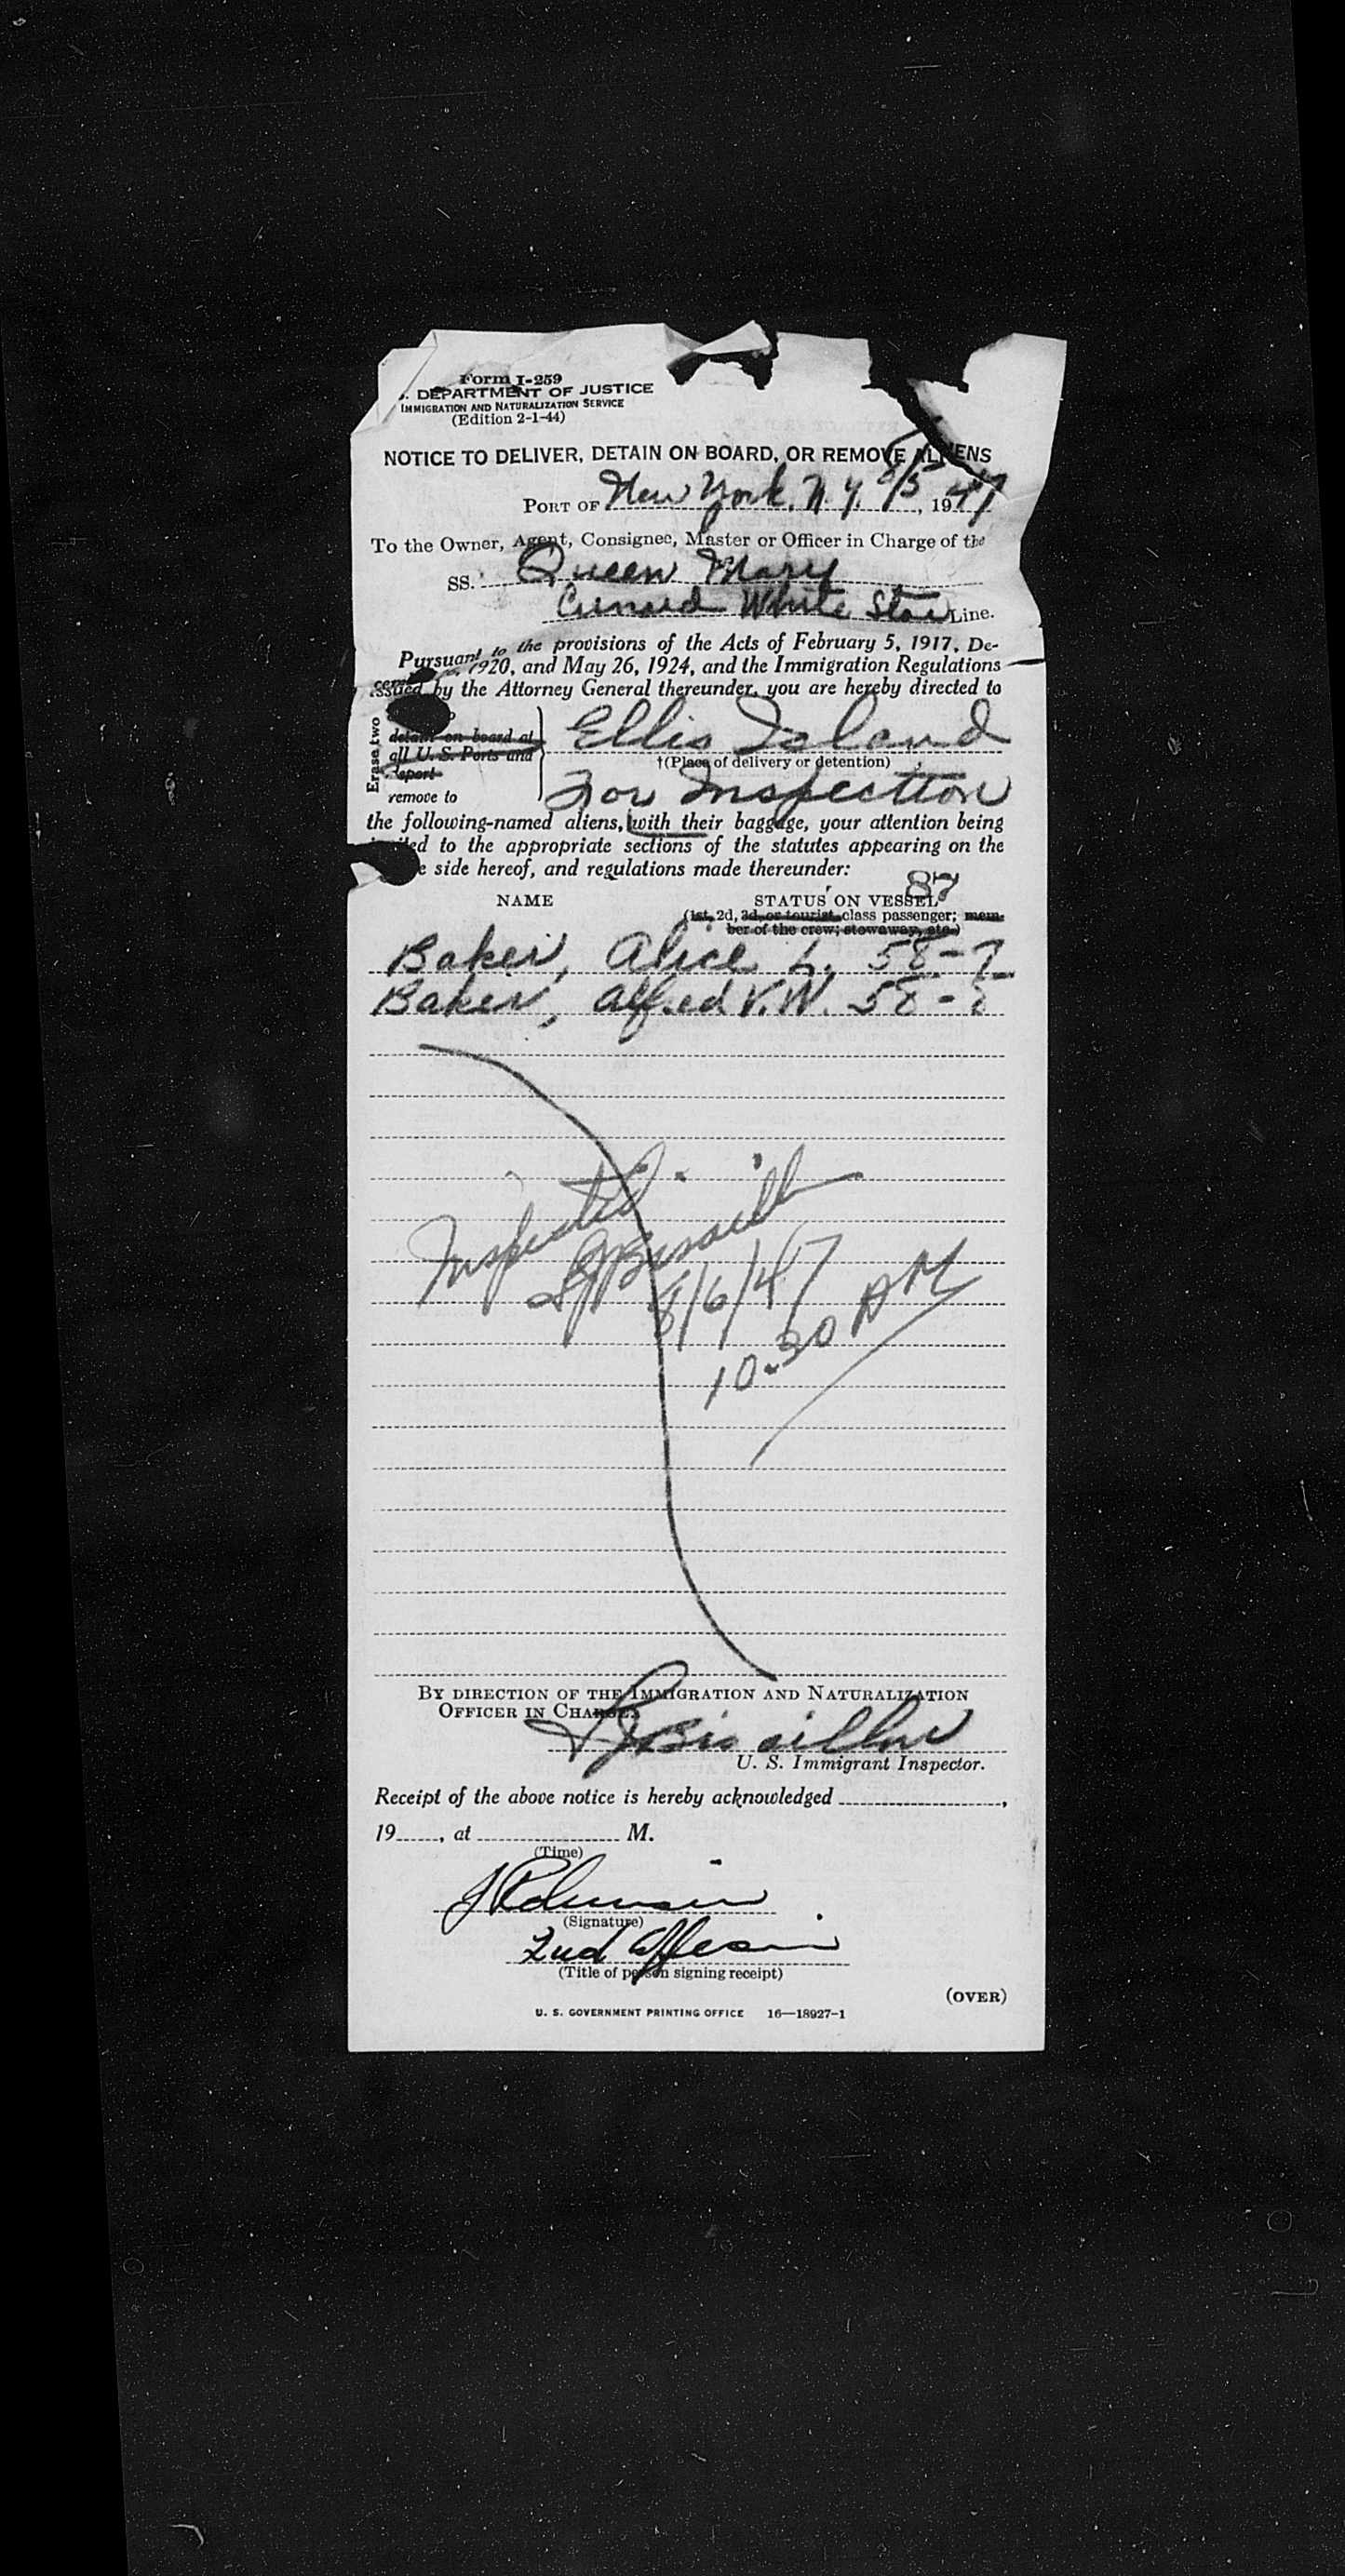 Form I-259
. DEPARTMENT OF JUSTICE
IMMIGRATION AND NATURALIZATION SERVICE
(Edition 2-1-44)
NOTICE TO DELIVER, DETAIN ON BOARD, OR REMOVE ALIENS
PORT OF New York, N.Y. 8/5, 1947
To the Owner, Agent, Consignee, Master or Officer in Charge of the
SS. Queen Mary
Cunard White Star Line.
Pursuant to the provisions of the Acts of February 5, 1917, De-
1920, and May 26, 1924, and the Immigration Regulations
issued by the Attorney General thereunder, you are hereby directed to
Erase two
detain on board at
all U. S. Ports and
remove to
Ellis Island
†(Place of delivery or detention)
For Inspection
the following-named aliens, with their baggage, your attention being
to the appropriate sections of the statutes appearing on the
side hereof, and regulations made thereunder:
87
NAME STATUS ON VESSEL
(1st, 2d, 3d, or tourist class passenger; mem-
ber of the crew; stowaway, etc.)
Baker, Alice L. 58-7
Baker, Alfred V.W. 58-8
Inspected
8/6/47
10.30 AM
BY DIRECTION OF THE IMMIGRATION AND NATURALIZATION
OFFICER IN CHARGE:
U. S. Immigrant Inspector.
Receipt of the above notice is hereby acknowledged ,
19 , at M.
(Time)
J Robinson
(Signature)
2nd Officer
(Title of person signing receipt)
(OVER)
U. S. GOVERNMENT PRINTING OFFICE 16—18927-1